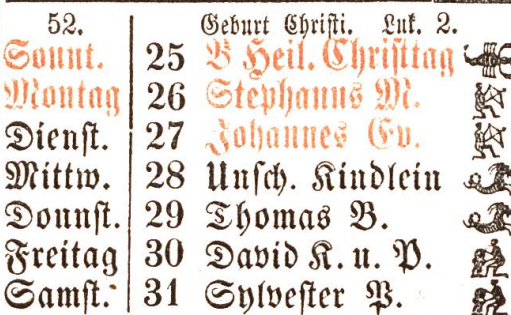 52. Geburt Christi. Luk. 2.
Sonnt. 25 B Heil. Christtag
Montag 26 Stephanus M.
Dienst. 27 Johannes Ev.
Mittw. 28 Unsch. Kindlein
Donnst. 29 Thomas B.
Freitag 30 David K. u. P.
Samst. 31 Sylvester P.